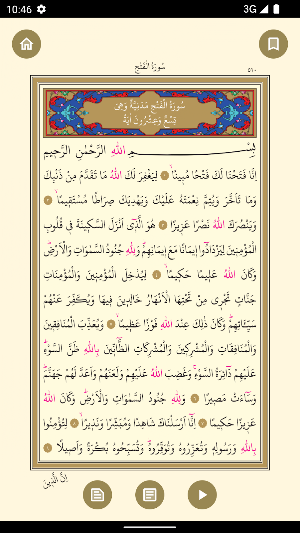 10:46
3G
سُورَةُ الْفَتْحِ
٥١٠
سُورَةُ الْفَتْحِ مَدَنِيَّةٌ وَهِيَ
تِسْعٌ وَعِشْرُونَ اٰيَةً
بِسْمِ اللهِ الرَّحْمٰنِ الرَّحِيمِ
اِنَّا فَتَحْنَا لَكَ فَتْحًا مُبِينًاۙ لِيَغْفِرَ لَكَ اللهُ مَا تَقَدَّمَ مِنْ ذَنْبِكَ
وَمَا تَاَخَّرَ وَيُتِمَّ نِعْمَتَهُ عَلَيْكَ وَيَهْدِيَكَ صِرَاطًا مُسْتَقِيمًاۙ
وَيَنْصُرَكَ اللهُ نَصْرًا عَزِيزًا هُوَ الَّذِٓي اَنْزَلَ السَّكِينَةَ فِي قُلُوبِ
الْمُؤْمِنِينَ لِيَزْدَادُٓوا اِيمَانًا مَعَ اِيمَانِهِمْۜ وَلِلهِ جُنُودُ السَّمٰوَاتِ وَالْاَرْضِۜ
وَكَانَ اللهُ عَلِيمًا حَكِيمًاۙ لِيُدْخِلَ الْمُؤْمِنِينَ وَالْمُؤْمِنَاتِ
جَنَّاتٍ تَجْرِي مِنْ تَحْتِهَا الْاَنْهَارُ خَالِدِينَ فِيهَا وَيُكَفِّرَ عَنْهُمْ
سَيِّـَٔاتِهِمْۜ وَكَانَ ذٰلِكَ عِنْدَ اللهِ فَوْزًا عَظِيمًاۙ وَيُعَذِّبَ الْمُنَافِقِينَ
وَالْمُنَافِقَاتِ وَالْمُشْرِكِينَ وَالْمُشْرِكَاتِ الظَّٓانِّينَ بِاللهِ ظَنَّ السَّوْءِۜ
عَلَيْهِمْ دَٓائِرَةُ السَّوْءِۚ وَغَضِبَ اللهُ عَلَيْهِمْ وَلَعَنَهُمْ وَاَعَدَّ لَهُمْ جَهَنَّمَۜ
وَسَٓاءَتْ مَصِيرًا وَلِلهِ جُنُودُ السَّمٰوَاتِ وَالْاَرْضِۜ وَكَانَ اللهُ
عَزِيزًا حَكِيمًا اِنَّٓا اَرْسَلْنَاكَ شَاهِدًا وَمُبَشِّرًا وَنَذِيرًاۙ لِتُؤْمِنُوا
بِاللهِ وَرَسُولِهِ وَتُعَزِّرُوهُ وَتُوَقِّرُوهُۜ وَتُسَبِّحُوهُ بُكْرَةً وَاَصِيلًا
اِنَّ الَّذِينَ